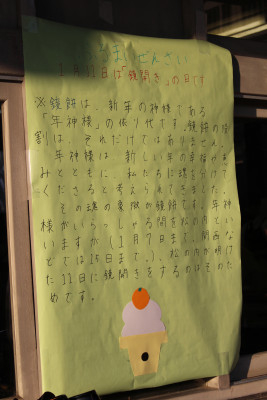 ぜんざい
1月11日は「鏡開き」の日です
※鏡餅は、新年の神様である
「年神様」の依り代です。鏡餅の役
割は、それだけではありません。
年神様は、新しい年の幸福や恵
みとともに、私たちに魂を分けて
くださると考えられてきました。
その魂の象徴が鏡餅です。年神
様がいらっしゃる間を松の内とい
いますが(1月7日まで、関西な
どでは15日まで。)、松の内が明け
た11日に鏡開きをするのはそのた
めです。